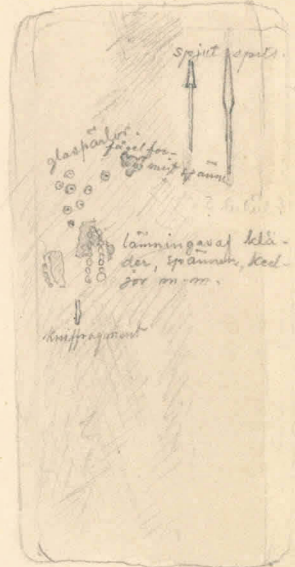 spjutspets.
glaspärlor.
fågelfor-
migt spänne
lämningar af klä-
der, spännen, ked-
jor m.m.
kniffragment